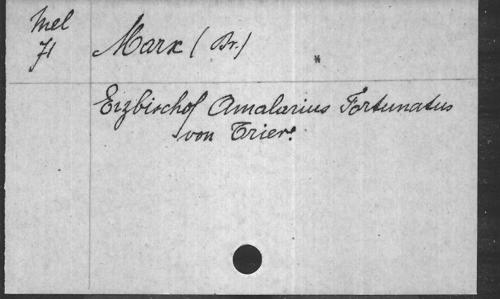 Mel
71
Marx (Br.)
*
Erzbischof Amalarius Fortunatus
von Trier.